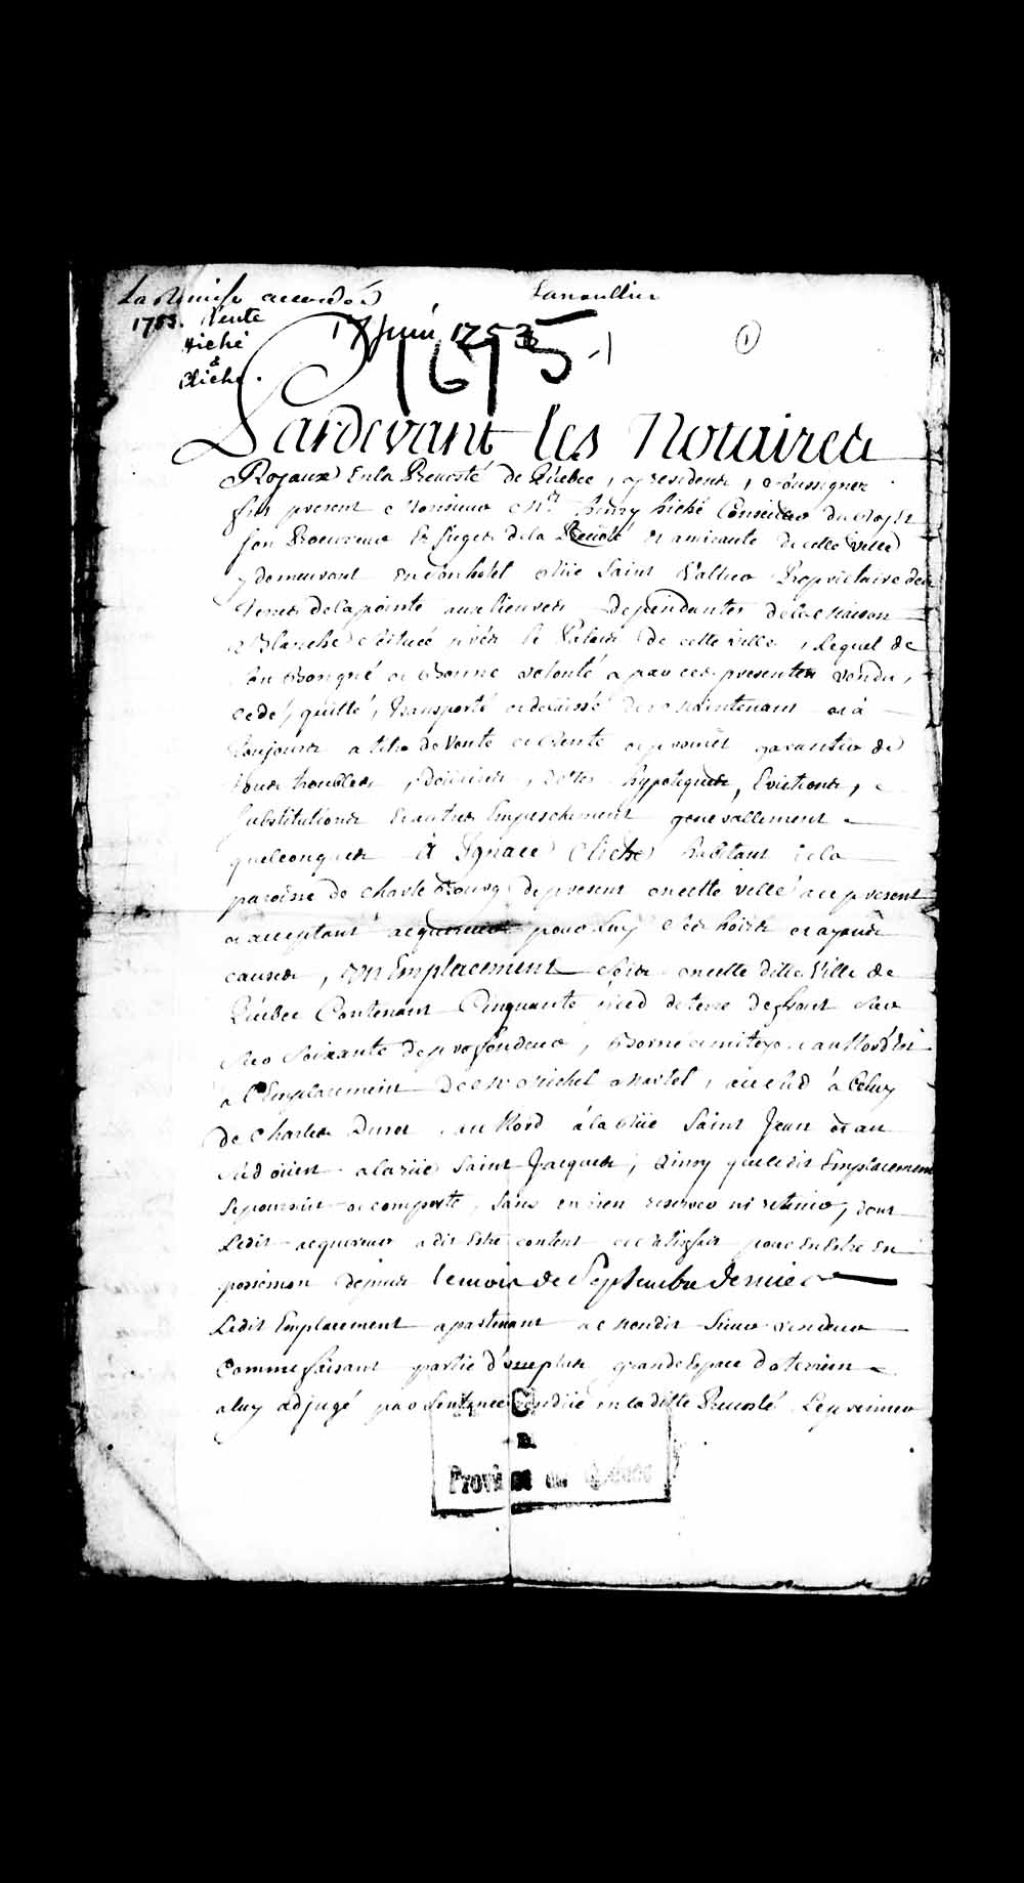 La Remise accordée
Lanoullier
1753. Vente
Hiché
à
Cliche.
17 Juin 1753
1675-1
1
Pardevant les Notaires
Royaux En la Prevosté de Québec, y residents, soussignez
fut present Monsieur Me. henry hiché Conseiller du Roy et
son Procureur Es Sieges de la Prevosté et amirauté de cette ville
y demeurant en son hotel Rüe Saint Vallier Proprietaire des
Terres de la pointe aux lievres dependantes de la maison
Blanche scituée prés le Palais de cette ville, Lequel de
son Bon gré et Bonne volonté a par ces presentes vendu,
cedé, quitté, transporté et delaissé dés maintenant et à
toujours a titre de Vente et promet garantir de
tous troubles, Doüaires, dettes hypoteques, Evictions,
substitutions Et autres Empeschements generallement
quelconques à Ignace Cliche habitant de la
paroisse de Charlesbourg de present en cette ville ace present
et acceptant acquereur pour luy ses hoirs et ayans
causes, un Emplacement scis en cette ditte Ville de
Québec Contenant Cinquante pied de terre de front sur
Soixante de profondeur, Borné au Nord Est
a l'Emplacement de Michel Martel, au sud à Celuy
de Charles Duret, au Nord à la Rüe Saint Jean et au
sud oüest a la rüe Saint Jacques, Ainsy que ledit Emplacement
se poursuit et comporte, sans en rien reserver ni retenir, dont
Ledit acquereur a dit Estre content et satisfait pour En Estre En
possession depuis le mois de Septembre dernier
Ledit Emplacement apartenant a mondit Sieur vendeur
Comme faisant partie d'une plus grande Espace de terrein
a luy adjugé par Sentence rendüe en la ditte Prevosté Le premier
C.
Province de Québec